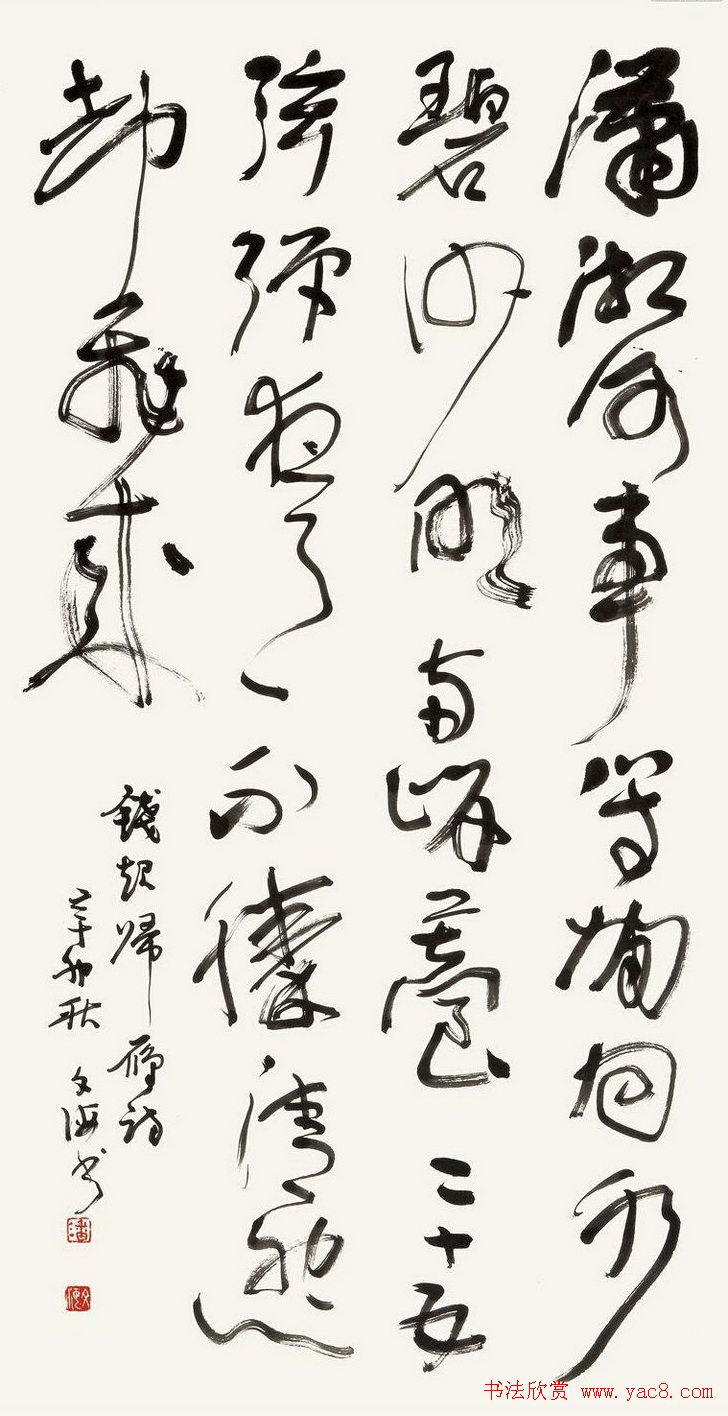 瀟湘何事等閒回水
碧沙明兩岸苔二十五
弦彈夜月不勝清怨
却飛來
錢起歸雁詩
辛卯秋文海书
潘
书法欣赏 www.yac8.com